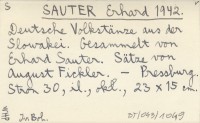 S
SAUTER Erhard 1942.
Deutsche Volkstänze aus der
Slowakei. Gesammelt von
Erhard Sauter. Sätze von
August Fickler. – Pressburg.
Str. 30, il., obl., 23 x 15 cm.
In. Bol.
DT/093/1049